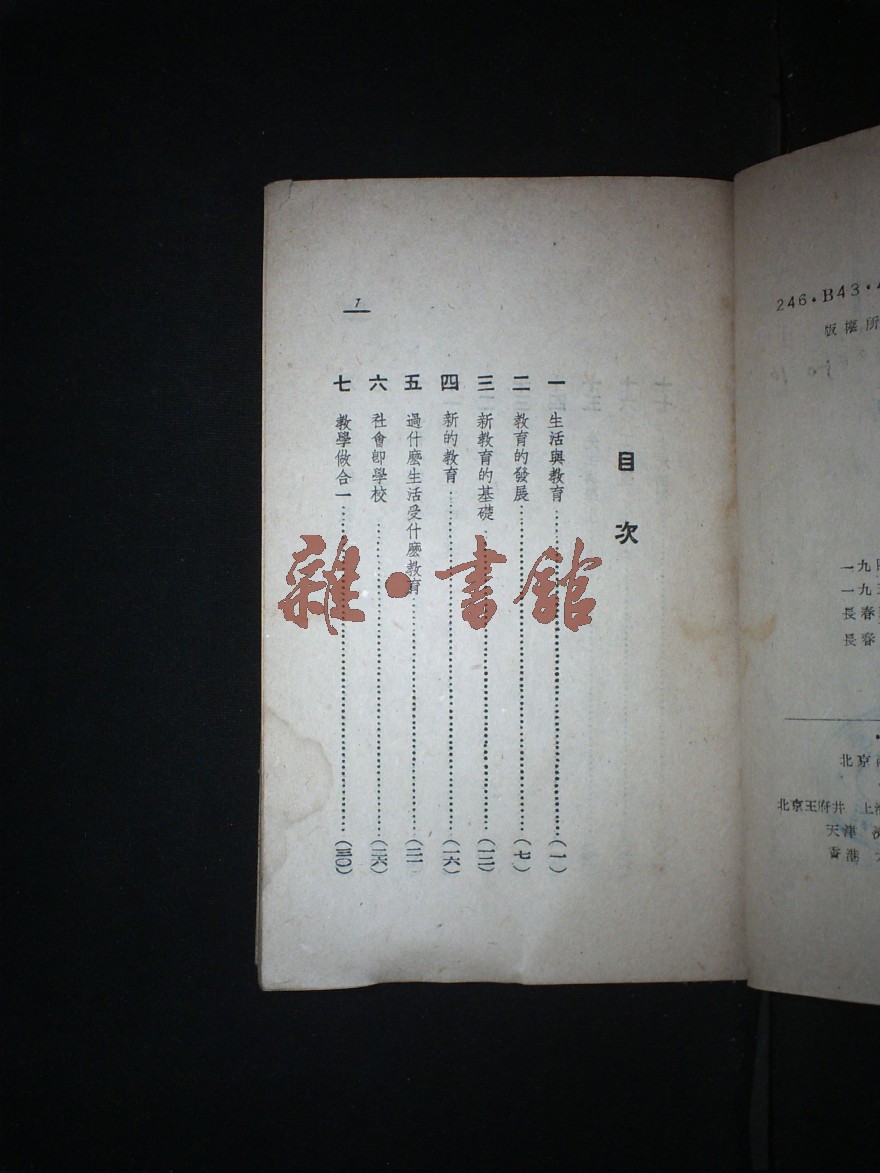 目次
一 生活與教育……(一)
二 教育的發展……(七)
三 新教育的基礎……(一二)
四 新的教育……(一六)
五 過什麽生活受什麽教育……(二一)
六 社會卽學校……(二六)
七 教學做合一……(三〇)
1
雜·書館
246·B43·
版權所
一九
一九五
長春
長春
北京
北京王府井 上海
天津
香港